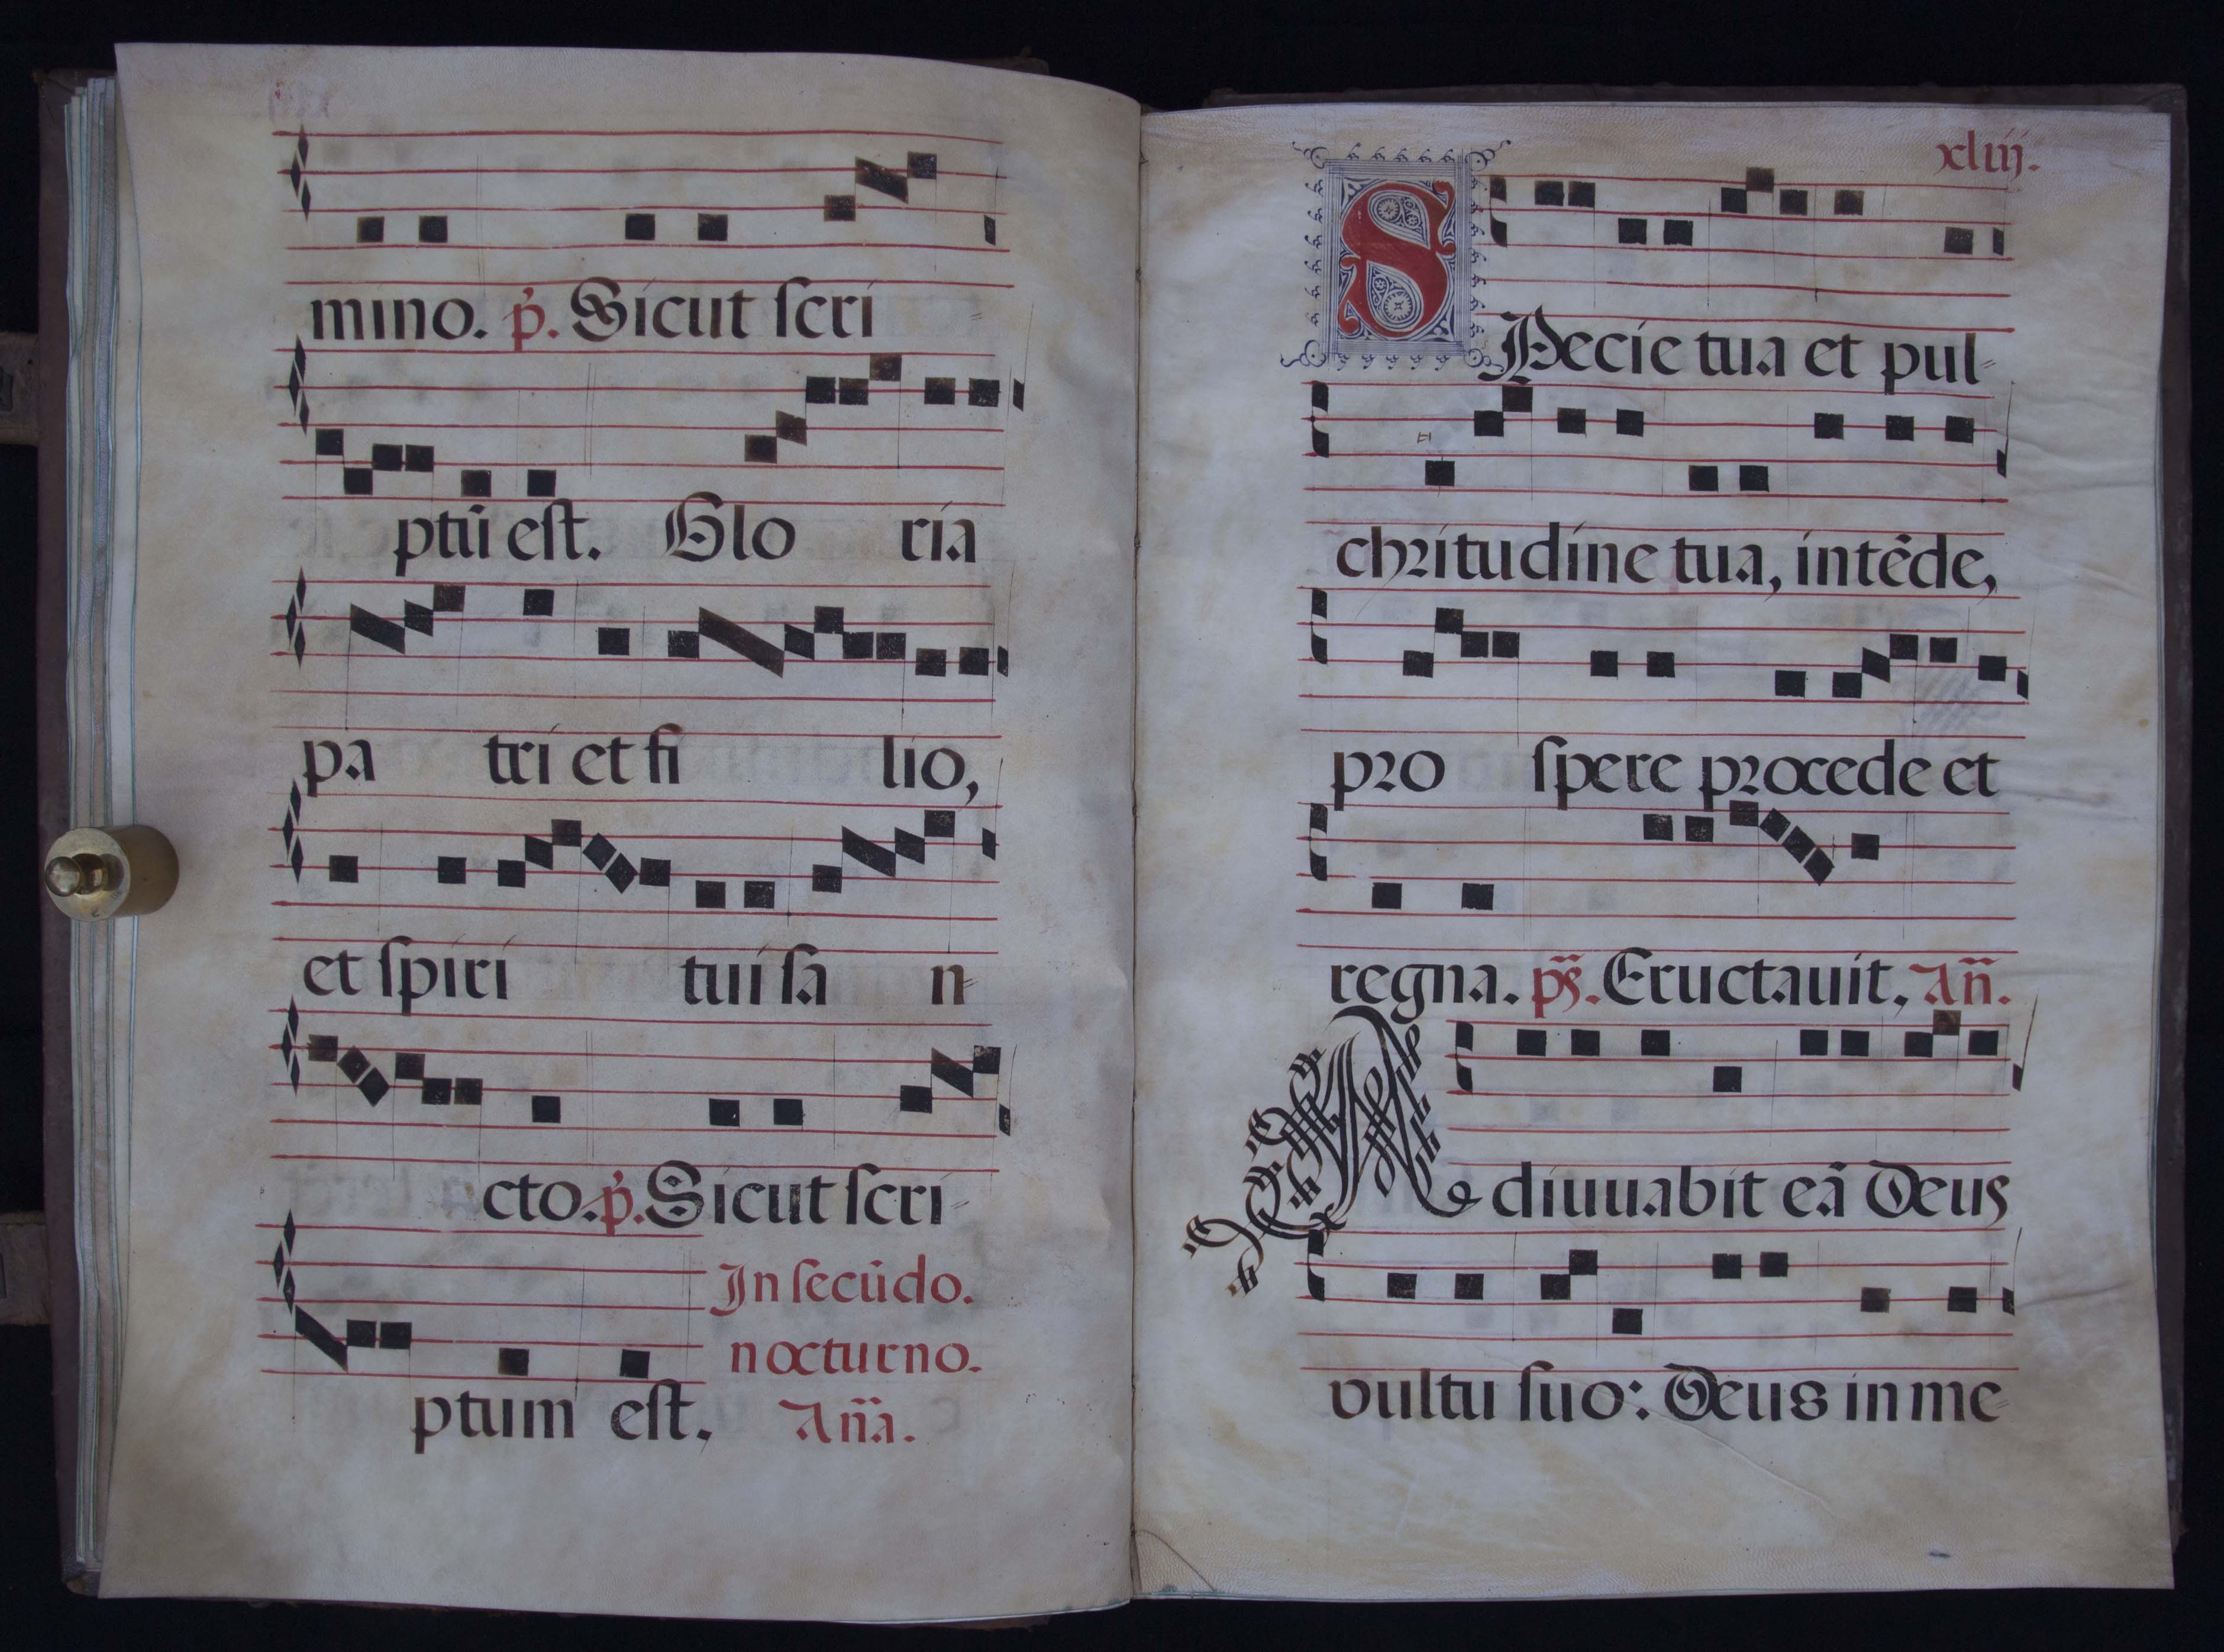 mino. p̓. Sicut ſcri=
ptū eſt. Glo ria
pa tri et fi lio,
et ſpiri tui ſa n=
cto. p̓. Sicut ſcri=
ptum eſt.
In ſecūdo.
nocturno.
Aña.
xliij.
SPecie tua et pul=
chritudine tua, intēde,
pro ſpere procede et
regna. ps̃. Eructauit. Añ.
Adiuuabit eā Deus
vultu ſuo: Deus in me=